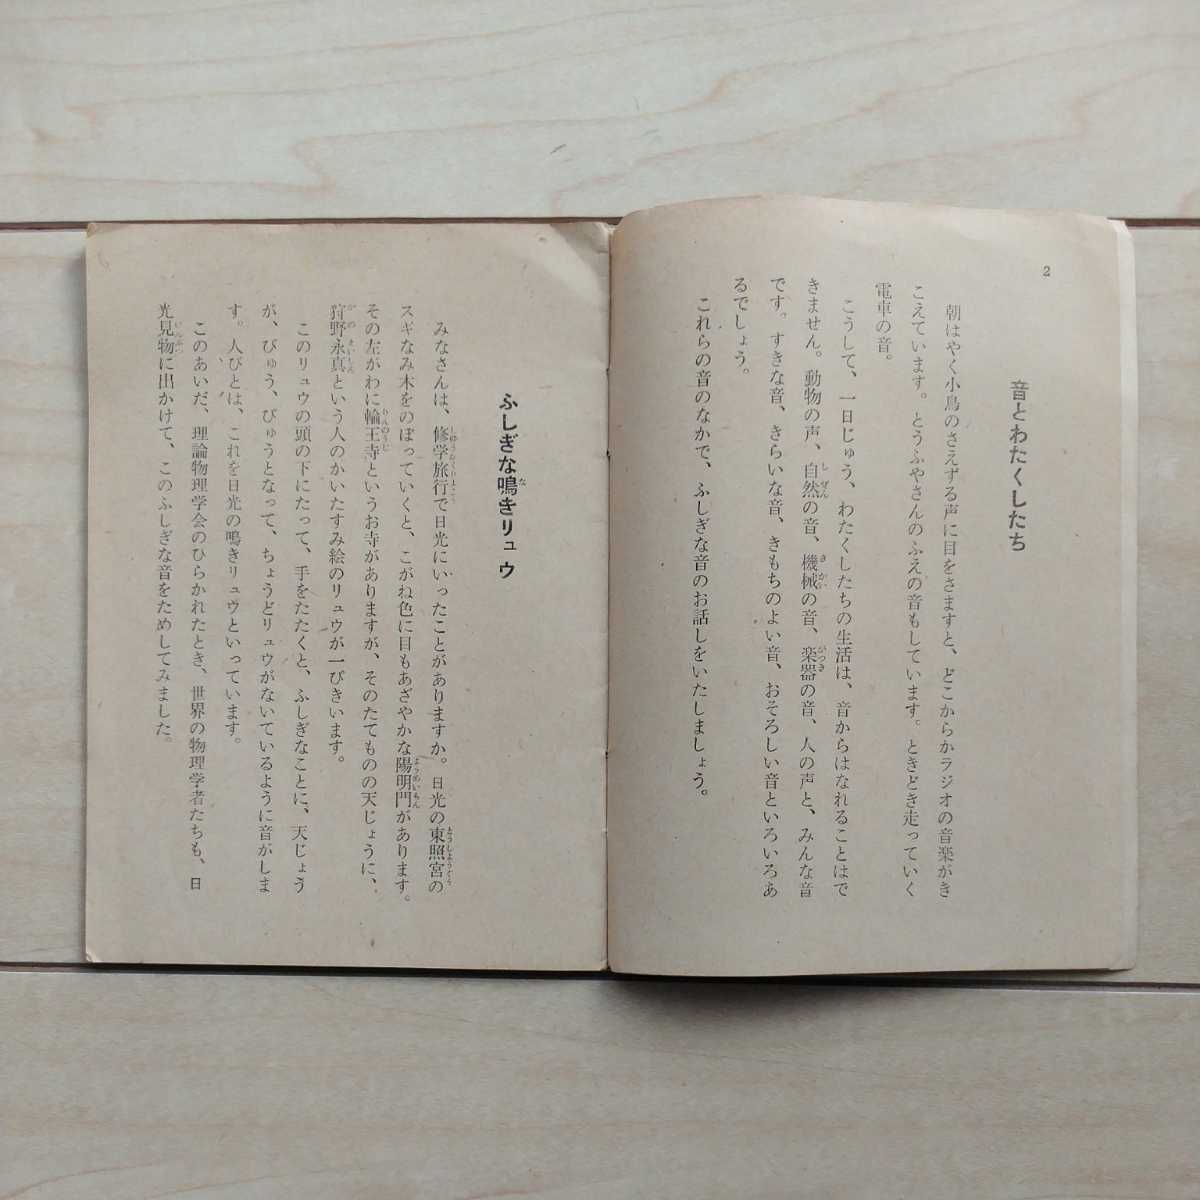 2
音とわたくしたち
朝はやく小鳥のさえずる声に目をさますと、どこからかラジオの音楽がき
こえています。とうふやさんのふえの音もしています。ときどき走っていく
電車の音。
こうして、一日じゅう、わたくしたちの生活は、音からはなれることはで
きません。動物の声、自然の音、機械の音、楽器の音、人の声と、みんな音
です。すきな音、きらいな音、きもちのよい音、おそろしい音といろいろあ
るでしょう。
これらの音のなかで、ふしぎな音のお話しをいたしましょう。
ふしぎな鳴きリュウ
みなさんは、修学旅行で日光にいったことがありますか。日光の東照宮の
スギなみ木をのぼっていくと、こがね色に目もあざやかな陽明門があります。
その左がわに輪王寺というお寺がありますが、そのたてものの天じょうに、
狩野永真という人のかいたすみ絵のリュウが一ぴきいます。
このリュウの頭の下にたって、手をたたくと、ふしぎなことに、天じょう
が、びゅう、びゅうとなって、ちょうどリュウがないているように音がしま
す。人びとは、これを日光の鳴きリュウといっています。
このあいだ、理論物理学会のひらかれたとき、世界の物理学者たちも、日
光見物に出かけて、このふしぎな音をためしてみました。